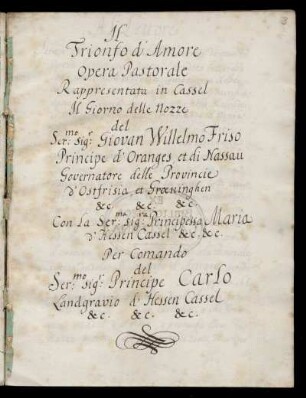 Il
Trionfo d'Amore
Opera Pastorale
Rappresentata in Cassel
Il Giorno delle Nozze
del
Ser:mo Sigr: Giovan Willelmo Friso
Principe d'Oranges et di Nassau
Governatore delle Provincie
d'Ostfrisia et Groeninghen
&c. &c. &c.
Con La Ser:ma Sig:ra Principessa Maria
d'Hessen Cassel &c. &c. &c.
Per Comando
del
Ser:mo Sigr: Principe Carlo
Landgravio d'Hessen Cassel
&c. &c. &c.